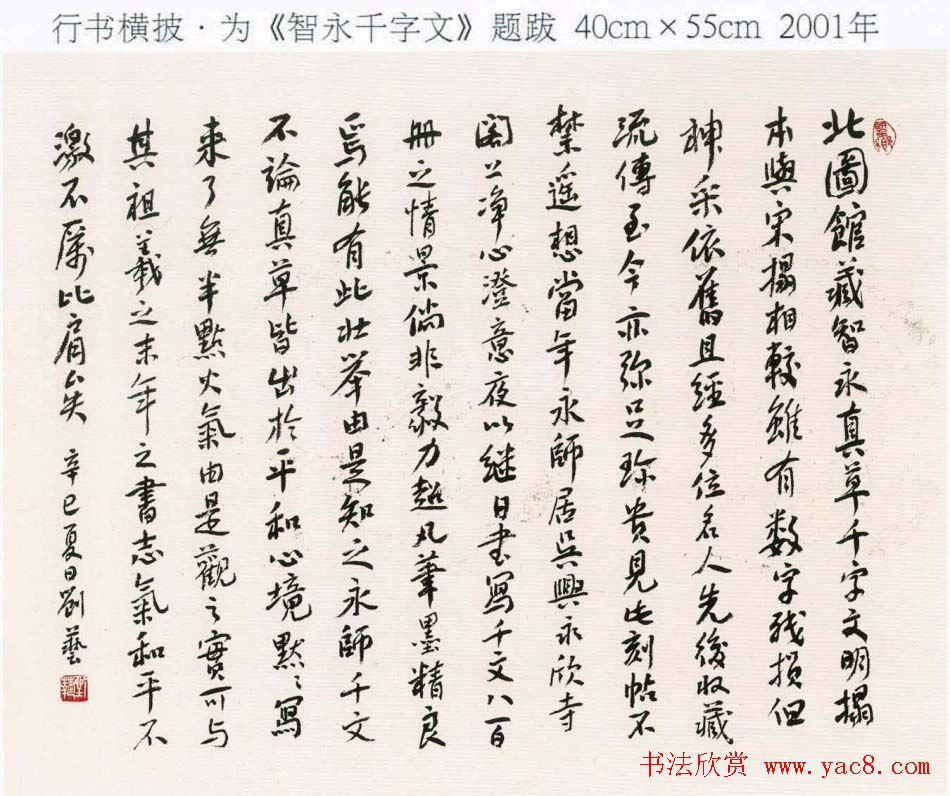 行书横披·为《智永千字文》题跋 40cm×55cm 2001年
北圖館藏智永真草千字文明搨
本與宋搨相較雖有数字残損但
神采依舊且經多位名人先後收藏
流傳至今亦弥足珍贵見此刻帖不
禁遥想當年永師居吳興永欣寺
阁上净心澄意夜以继日書寫千文八百
册之情景倘非毅力超凡筆墨精良
焉能有此壮举由是知之永師千文
不論真草皆出於平和心境默々寫
来了無半點火氣由是觀之實可与
其祖羲之末年之書志氣和平不
激不厲比肩矣 辛巳夏日劉藝
书法欣赏 www.yac8.com